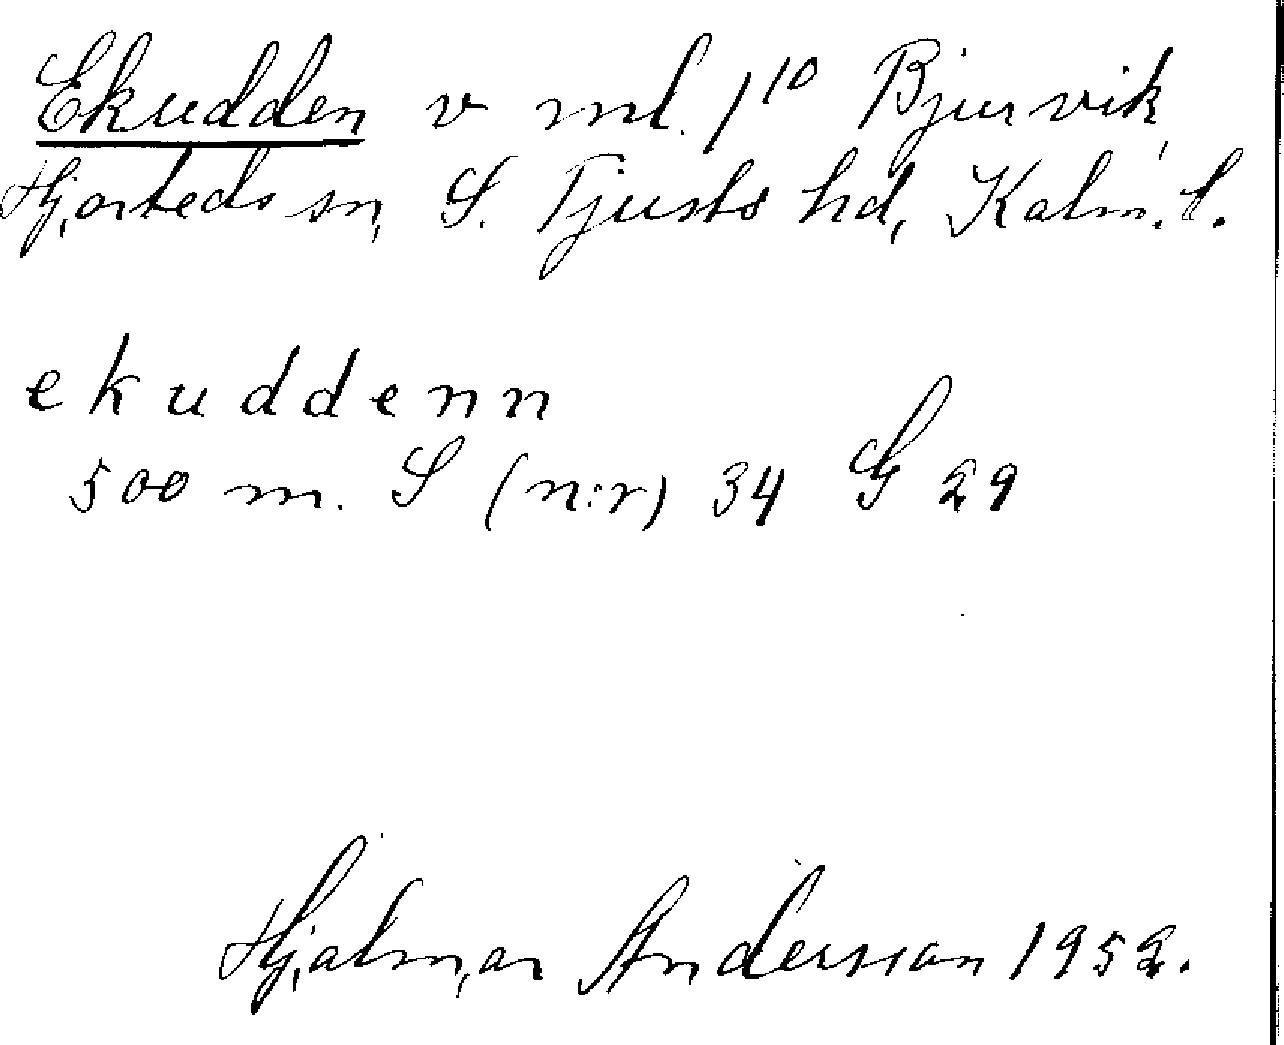 Ekudden v ml. 1¹⁰ Bjurvik,
Hjorteds sn, S. Tjusts hd, Kalm. l.
ekuddenn
500 m. S (n:r) 34 G 29
Hjalmar Andersson 1952.